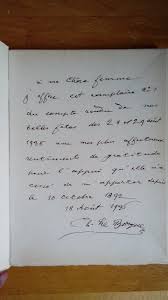 à ma chère femme
J'offre cet exemplaire n° 1
du compte rendu de nos
belles fêtes des 28 et 29 Août
1925 avec mes plus affectueux
sentiments de gratitude
pour l'appui qu'elle n'a
cessé de m'apporter depuis
le 10 octobre 1892
18 Août 1925
Ch. Le